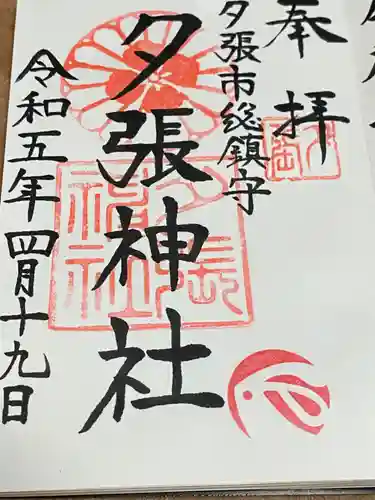 奉拝
夕張市総鎮守
夕張神社
令和五年四月十九日
夕張神社